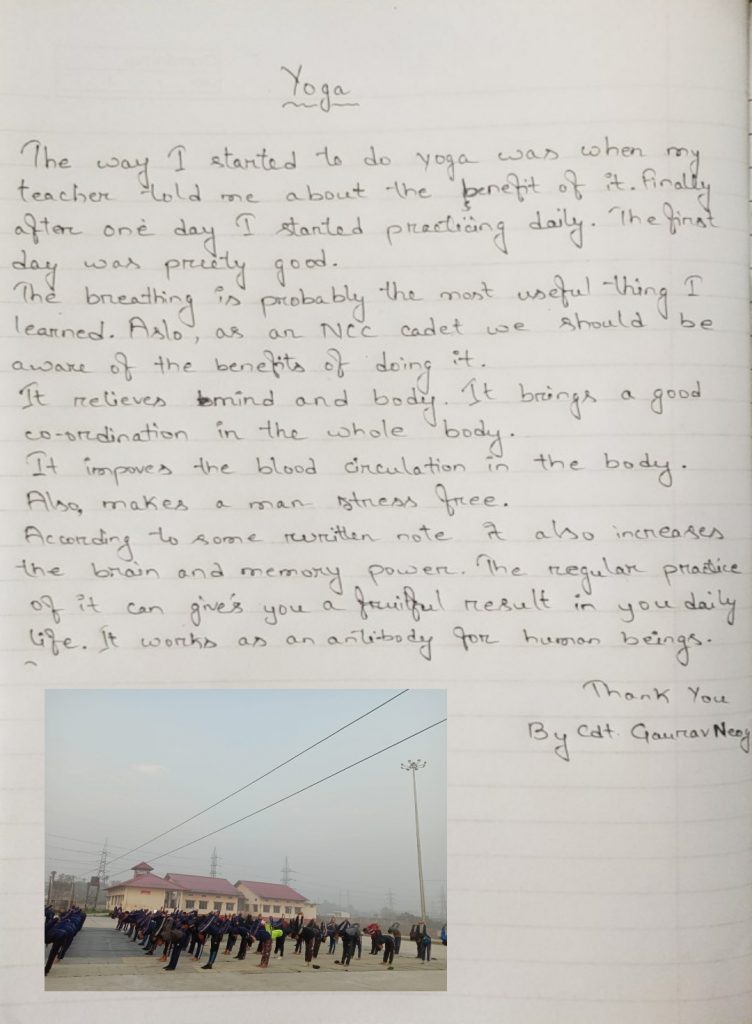 Yoga
The way I started to do yoga was when my
teacher told me about the benefit of it. Finally
after one day I started practicing daily. The first
day was preety good.
The breathing is probably the most useful thing I
learned. Aslo, as an NCC cadet we should be
aware of the benefits of doing it.
It relieves mind and body. It brings a good
co-ordination in the whole body.
It impoves the blood circulation in the body.
Also, makes a man stress free.
According to some written note it also increases
the brain and memory power. The regular practice
of it can gives you a fruitful result in you daily
life. It works as an antibody for human beings.
Thank You
By Cdt. Gaurav Neog